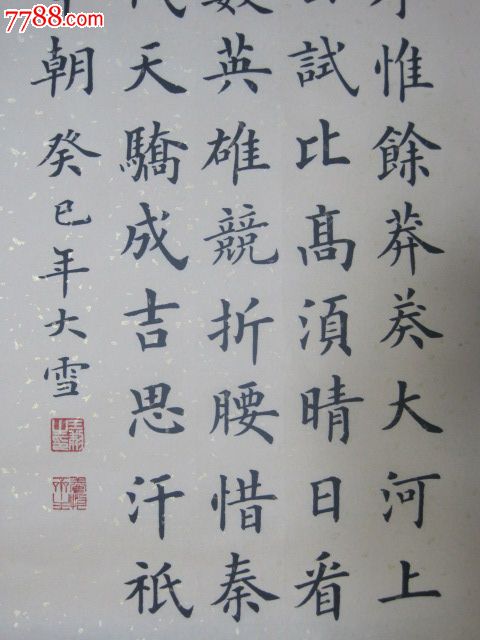 7788.com
惟餘莽莾大河上
試比髙須晴日看
數英雄競折腰惜秦
代天驕成吉思汗祇
朝癸巳年大雪